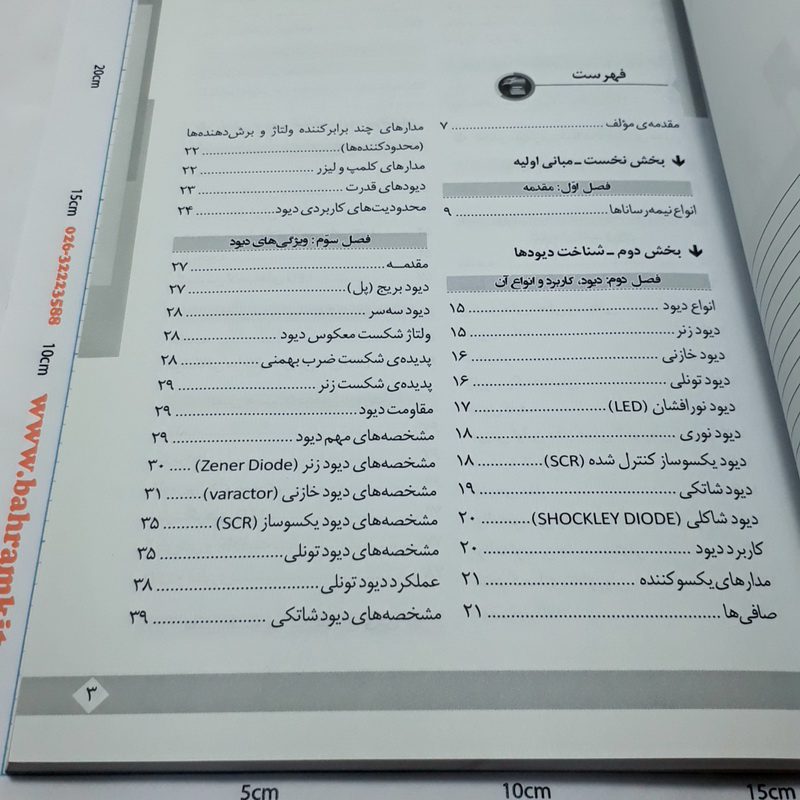 فهرست
مقدمه‌ی مؤلف ........................................ ۷
بخش نخست ـ مبانی اولیه
فصل اوّل: مقدمه
انواع نیمه‌رساناها ........................................ ۹
بخش دوم ـ شناخت دیودها
فصل دوم: دیود، کاربرد و انواع آن
انواع دیود ........................................ ۱۵
دیود زنر ........................................ ۱۵
دیود خازنی ........................................ ۱۶
دیود تونلی ........................................ ۱۶
دیود نورافشان (LED) ........................ ۱۷
دیود نوری ........................................ ۱۸
دیود یکسوساز کنترل شده (SCR) ............. ۱۸
دیود شاتکی ........................................ ۱۹
دیود شاکلی (SHOCKLEY DIODE) .......... ۲۰
کاربرد دیود ........................................ ۲۰
مدارهای یکسوکننده ........................ ۲۱
صافی‌ها ........................................ ۲۱
مدارهای چند برابرکننده ولتاژ و برش‌دهنده‌ها
(محدودکننده‌ها) ................................ ۲۲
مدارهای کلمپ و لیزر ........................ ۲۲
دیودهای قدرت ................................ ۲۳
محدودیت‌های کاربردی دیود .................. ۲۴
فصل سوّم: ویژگی‌های دیود
مقدمــه ........................................ ۲۷
دیود بریج (پل) ................................ ۲۷
دیود سه‌سر ........................................ ۲۸
ولتاژ شکست معکوس دیود .................. ۲۸
پدیده‌ی شکست ضرب بهمنی .................. ۲۸
پدیده‌ی شکست زنر ........................ ۲۹
مقاومت دیود ................................ ۲۹
مشخصه‌های مهم دیود ........................ ۲۹
مشخصه‌های دیود زنر (Zener Diode) ..... ۳۰
مشخصه‌های دیود خازنی (varactor) ........ ۳۱
مشخصه‌های دیود یکسوساز (SCR) ........... ۳۵
مشخصه‌های دیود تونلی ........................ ۳۵
عملکرد دیود تونلی ........................ ۳۸
مشخصه‌های دیود شاتکی ........................ ۳۹
۳
20cm
15cm
026-32223588
10cm
www.bahramkit
5cm
10cm
15cm